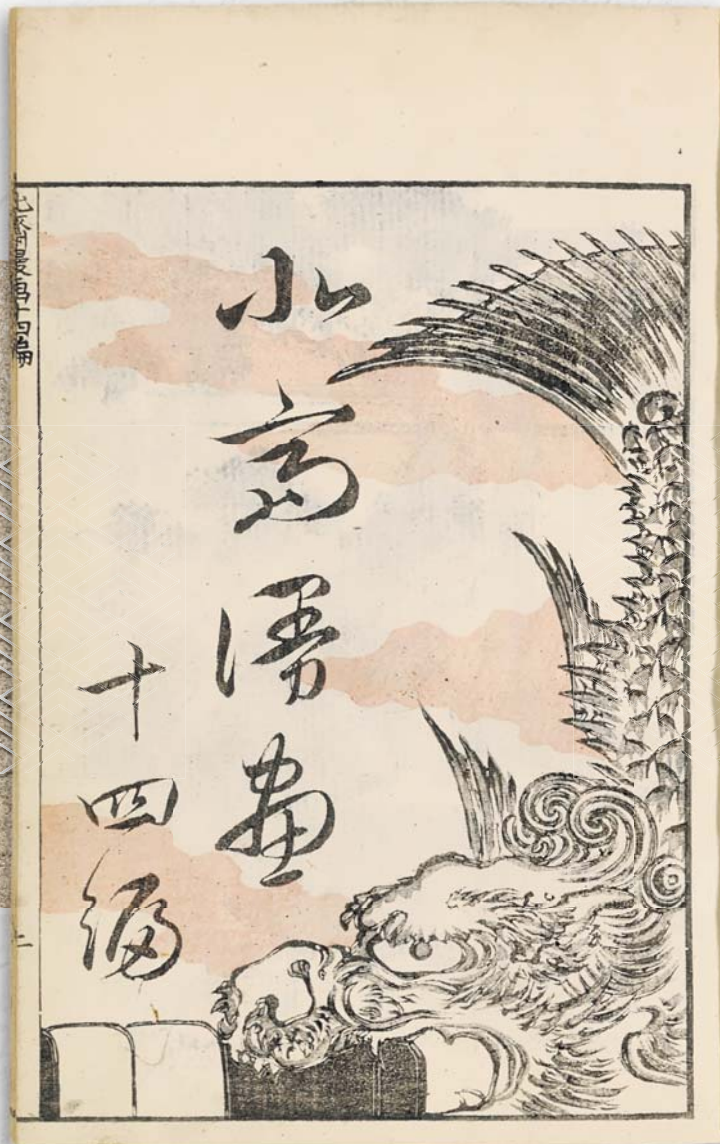 北斎漫画
十四編
北斎漫画十四編